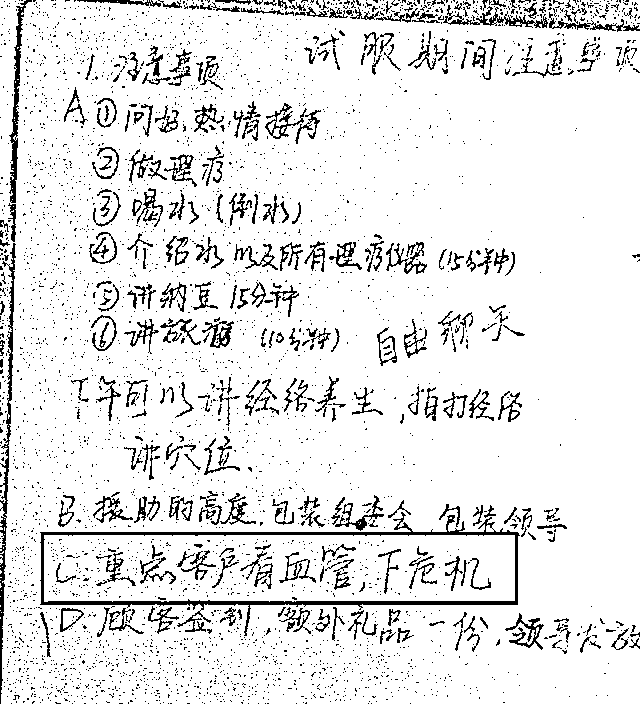 试服期间注意事项
1.注意事项
A ①问好,热情接待
②做理疗
③喝水(倒水)
④介绍水以及所有理疗仪器(15分钟)
⑤讲纳豆15分钟
⑥讲旅游(10分钟) 自由聊天
下午可以讲经络养生,拍打经络
讲穴位.
B.援助的高度.包装组委会 包装领导
C.重点客户看血管,下危机
D.顾客签到,额外礼品一份,领导发放